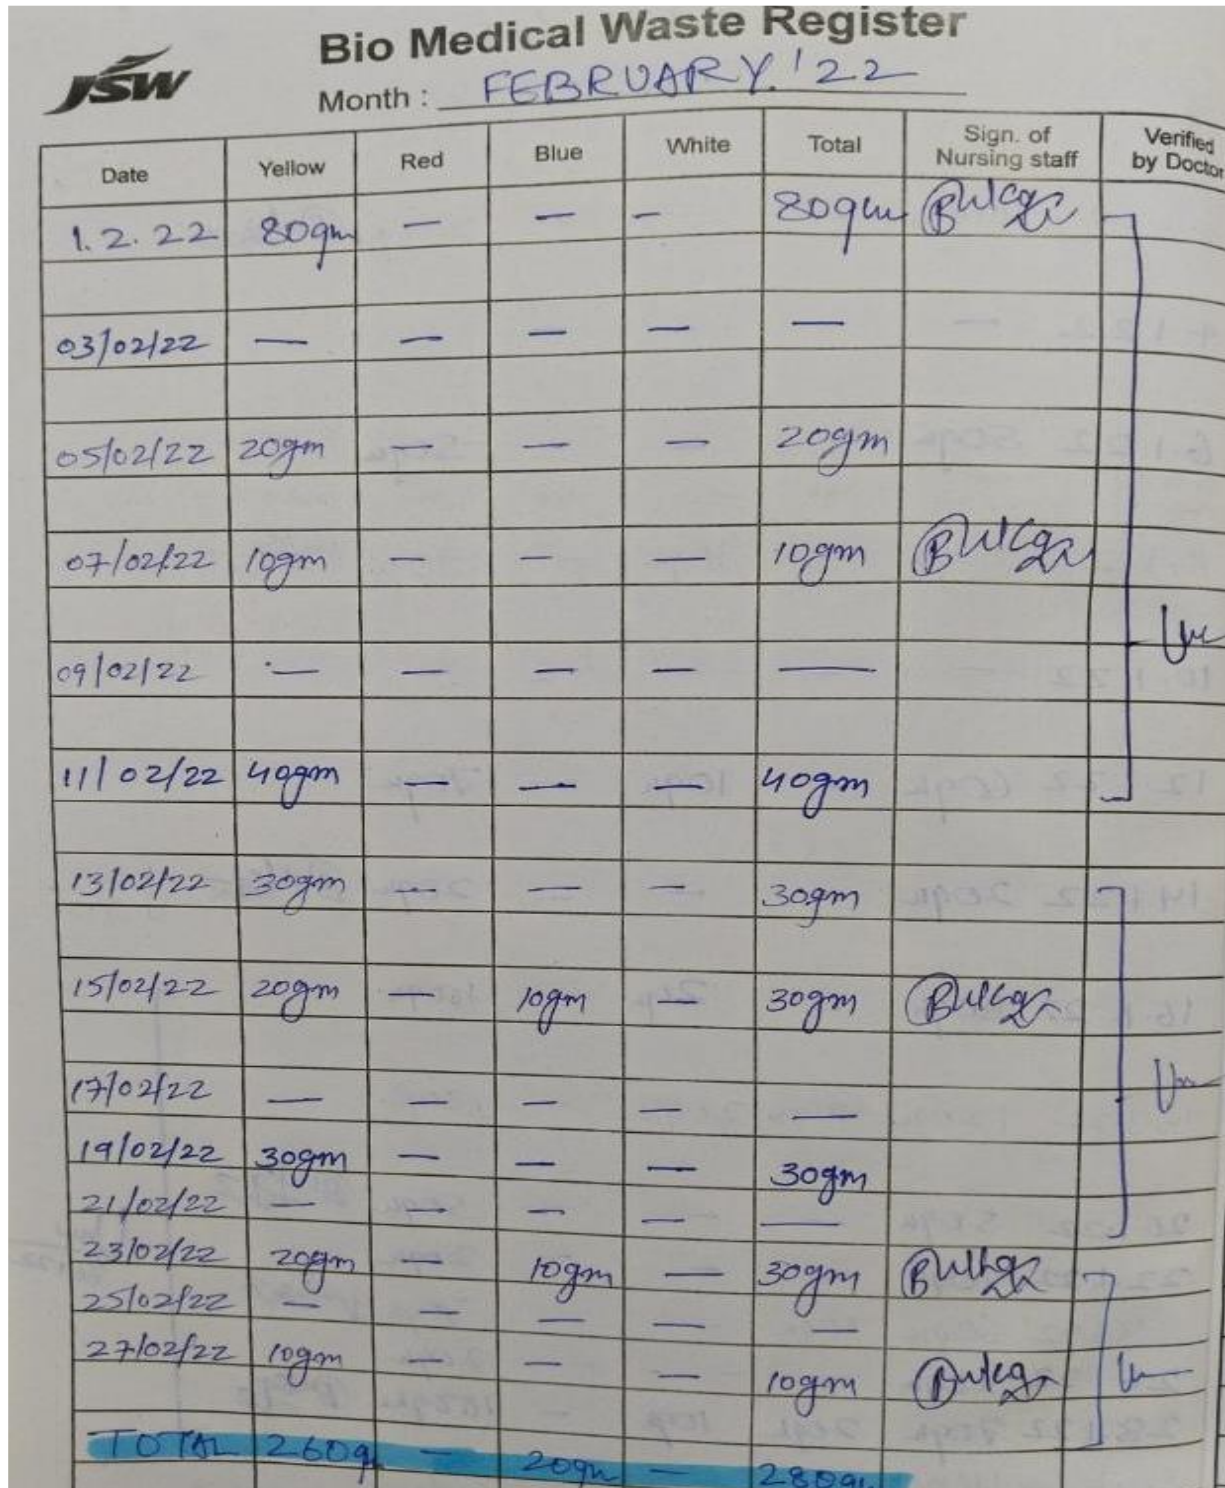 JSW
Bio Medical Waste Register
Month : FEBRUARY.'22
Date Yellow Red Blue White Total Sign. of Nursing staff Verified by Doctor
1.2.22 80gm — — — 80gm
03/02/22 — — — — —
05/02/22 20gm — — — 20gm
07/02/22 10gm — — — 10gm
09/02/22 — — — — —
11/02/22 40gm — — — 40gm
13/02/22 30gm — — — 30gm
15/02/22 20gm — 10gm — 30gm
17/02/22 — — — — —
19/02/22 30gm — — — 30gm
21/02/22 — — — — —
23/02/22 20gm — 10gm — 30gm
25/02/22 — — — — —
27/02/22 10gm — — — 10gm
TOTAL 260gm — 20gm — 280gm